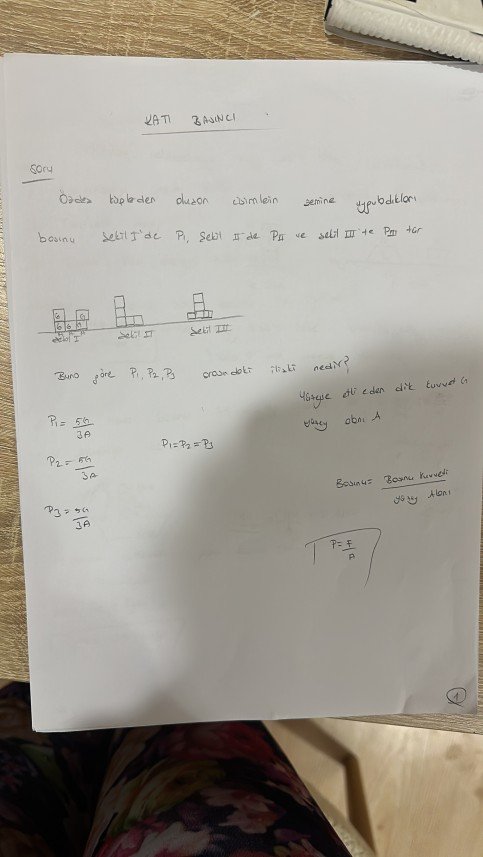 KATI BASINCI
Soru
Özdeş küplerden oluşan cisimlerin zemine uyguladıkları
basıncı Şekil I'de P₁, Şekil II'de PII ve şekil III te PIII tür
G G
G G G
A A A
Şekil I Şekil II Şekil III
Buna göre P₁, P₂, P₃ arasındaki ilişki nedir?
Yüzeye etki eden dik kuvvet G
yüzey alanı A
P₁ = 5G/3A
P₁=P₂=P₃
P₂ = 5G/3A
Basınç = Basınç kuvveti / yüzey Alanı
P₃ = 5G/3A
P = F/A
1